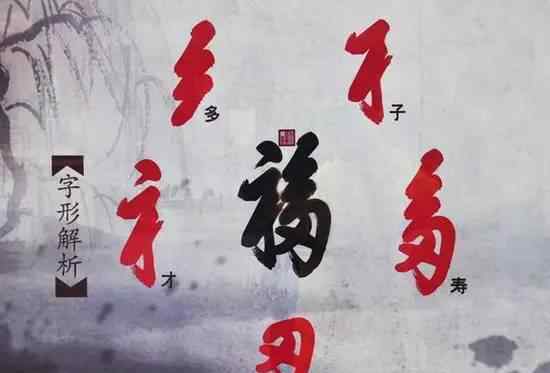 多
子
福
才
寿
【字形解析】